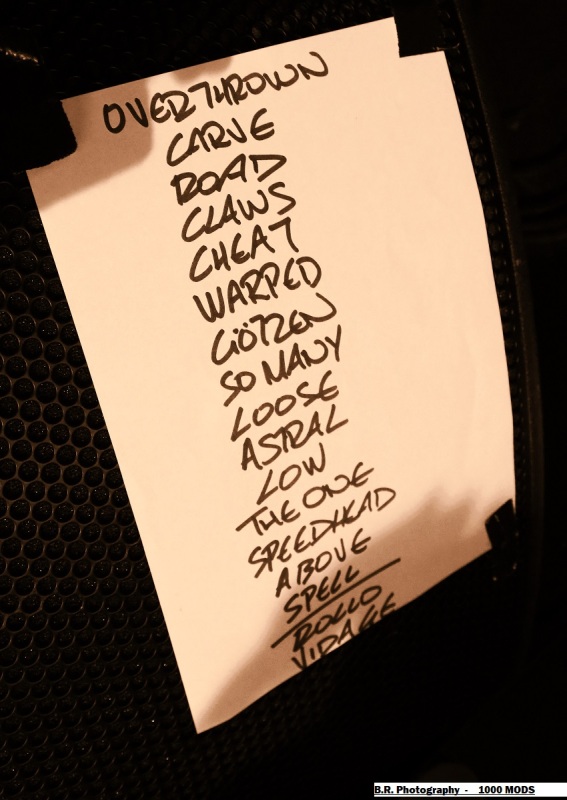 OVERTHROWN
CARVE
ROAD
CLAWS
CHEAT
WARPED
GÖTZEN
SO MANY
LOOSE
ASTRAL
LOW
THE ONE
SPEEDHEAD
ABOVE
SPELL
ROLLO
VIDAGE
B.R. Photography - 1000 MODS